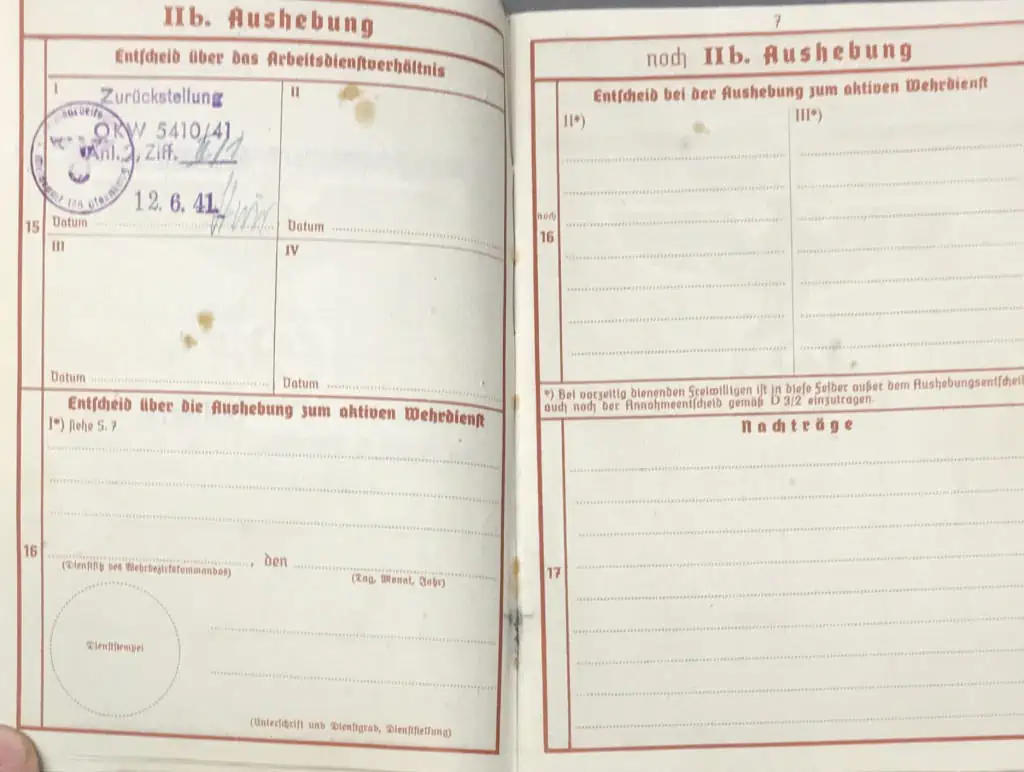 IIb. Aushebung
Entscheid über das Arbeitsdienstverhältnis
15
I
Zurückstellung
OKW 5410/41
Anl. , Ziff.
12. 6. 41
Datum
II
Datum
III
Datum
IV
Datum
Entscheid über die Aushebung zum aktiven Wehrdienst
I*) siehe S. 7
16
, den
(Dienstsitz des Wehrbezirkskommandos)
(Tag, Monat, Jahr)
Dienststempel
(Unterschrift und Dienstgrad, Dienststellung)
7
noch IIb. Aushebung
Entscheid bei der Aushebung zum aktiven Wehrdienst
II*)
III*)
noch
16
*) Bei vorzeitig dienenden Freiwilligen ist in diese Felder außer dem Aushebungsentscheid
auch noch der Annahmeentscheid gemäß D 3/2 einzutragen.
Nachträge
17